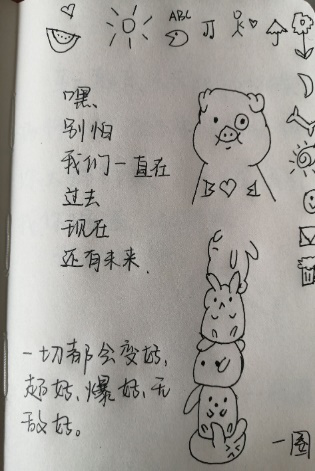 ABC
嘿、
别怕
我们一直在
过去
现在
还有未来.
一切都会变好,
超好、爆好、无
敌好。
一圈